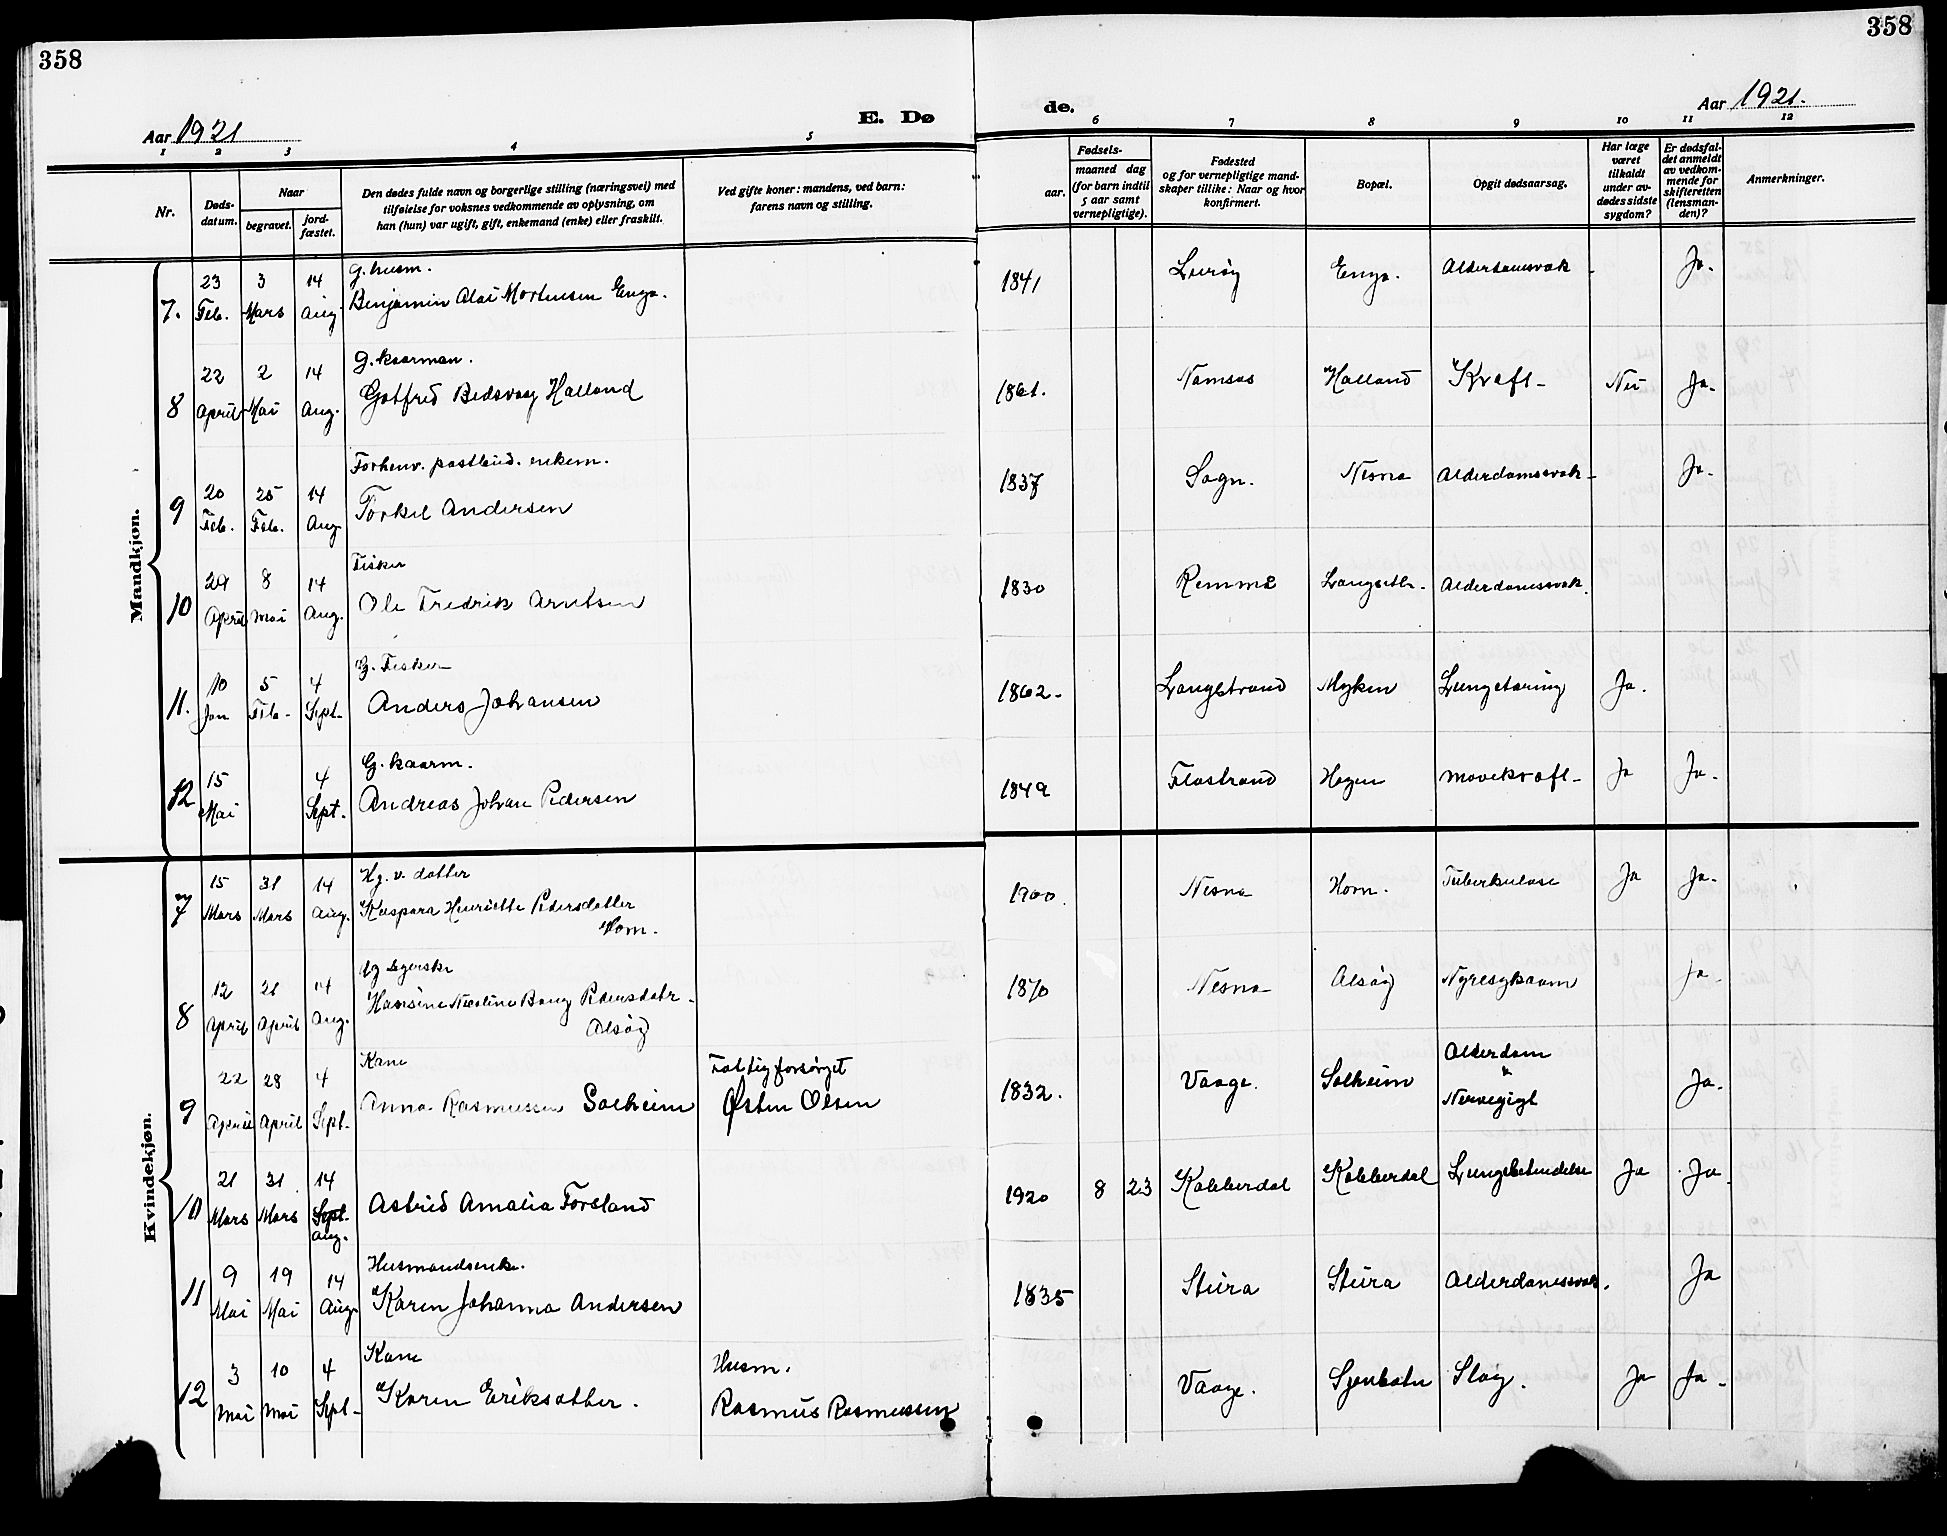 358
358
Aar 1921
E. Dø
de.
Aar 1921.
1 2 3 4 5 6 7 8 9 10 11 12
Nr.
Døds-
datum.
Naar
begravet.
jord-
fæstet.
Den dødes fulde navn og borgerlige stilling (næringsvei) med
tilføielse for voksnes vedkommende av oplysning, om
han (hun) var ugift, gift, enkemand (enke) eller fraskilt.
Ved gifte koner: mandens, ved barn:
farens navn og stilling.
Fødsels-
aar.
maaned dag
(for barn indtil
5 aar samt
vernepligtige).
Fødested
og for vernepligtige mand-
skaper tillike: Naar og hvor
konfirmert.
Bopæl.
Opgit dødsaarsag.
Har læge
været
tilkaldt
under av-
dødes sidste
sygdom?
Er dødsfal-
det anmeldt
av vedkom-
mende for
skifteretten
(lensman-
den)?
Anmerkninger.
Mandkjøn.
7. 23 Feb. 3 Mars 14 Aug. g. husm.
Benjamin Olai Mortensen Enga. 1841 Lurøy Enga. Alderdomsvak Ja.
8 22 April 2 Mai 14 Aug. g. kaarman.
Gotfred Bedsvaag Halland 1861. Namsos Halland Kræft Nei Ja.
9 20 Feb. 25 Feb. 14 Aug. Forhenv. postbud. enkem.
Torkel Andersen 1837 Sogn. Nesna Alderdomssvak Ja.
10 29 April 8 Mai 14 Aug. Fisker
Ole Fredrik Arntsen 1830 Remmø Langsetr. Alderdomssvak.
11. 10 Jan 5 Feb. 4 Sept. G. Fisker
Anders Johansen 1862. Langstrand Myken Lungetæring Ja.
12 15 Mai 4 Sept. G. kaarm.
Andreas Johan Pedersen 1849 Flostrand Hagen mavekræft Ja Ja.
Kvindekjøn.
7 15 Mars 31 Mars 14 Aug. Hg. v. datter
Kaspara Henriette Pedersdatter
Horn. 1900. Nesna Horn. Tuberkulose Ja Ja.
8 12 April 21 April 14 Aug.
Hansine Nicoline Bang Pedersdatr.
Alsøy 1870 Nesna Alsøy Nyresykdom Ja.
9 22 April 28 April 4 Sept. Kone
Anna Rasmussen Solheim Fattigforsørget
Østen Olsen 1832. Vaage. Solheim Alderdom
&
Nervegigt Ja.
10 21 Mars 31 Mars 14 Sept. Aug.
Astrid Amalia Forsland 1920 8 23 Kobberdal Kobberdal Lungebetændelse Ja Ja.
11 9 Mai 19 Mai 14 Aug. Husmandsenke.
Karen Johanna Andersen 1835 Stura Stura Alderdomssvak. Ja
12 3 Mai 10 Mai 4 Sept. Kone
Karen Eriksdatter. Husm.
Rasmus Rasmussen Vaage. Sjonbotn Slag. Ja Ja.